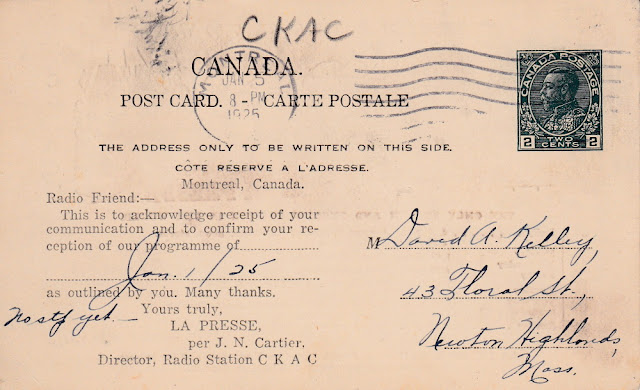 CKAC
MONTREAL
JAN 5
8 - PM
1925
CANADA.
POST CARD. - CARTE POSTALE
CANADA POSTAGE
2 TWO CENTS 2
THE ADDRESS ONLY TO BE WRITTEN ON THIS SIDE.
CÔTE RÉSERVÉ A L'ADRESSE.
Montreal, Canada.
Radio Friend:—
This is to acknowledge receipt of your
communication and to confirm your re-
ception of our programme of
Jan. 1/25
as outlined by you. Many thanks.
No stf yet —
Yours truly,
LA PRESSE,
per J. N. Cartier,
Director, Radio Station C K A C
M David A. Kelley,
43 Floral St.,
Newton Highlands,
Mass.